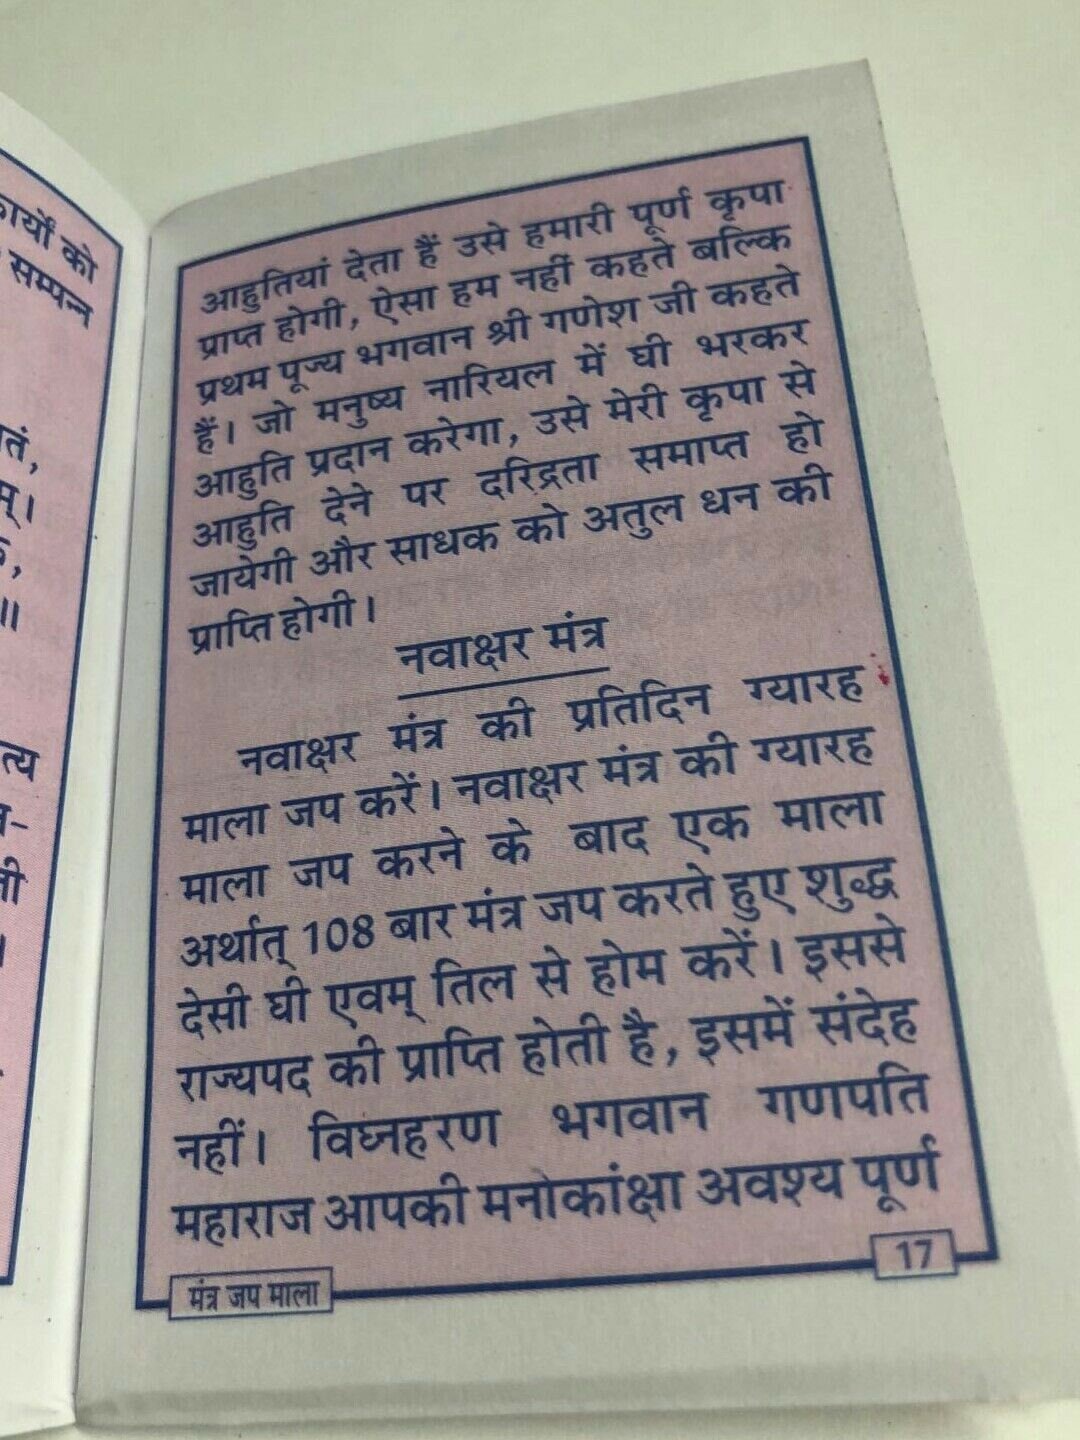 कार्यों को
सम्पन्न
आहुतियां देता हैं उसे हमारी पूर्ण कृपा
प्राप्त होगी, ऐसा हम नहीं कहते बल्कि
प्रथम पूज्य भगवान श्री गणेश जी कहते
हैं। जो मनुष्य नारियल में घी भरकर
आहुति प्रदान करेगा, उसे मेरी कृपा से
आहुति देने पर दरिद्रता समाप्त हो
जायेगी और साधक को अतुल धन की
प्राप्ति होगी।
नवाक्षर मंत्र
नवाक्षर मंत्र की प्रतिदिन ग्यारह
माला जप करें। नवाक्षर मंत्र की ग्यारह
माला जप करने के बाद एक माला
अर्थात् 108 बार मंत्र जप करते हुए शुद्ध
देसी घी एवम् तिल से होम करें। इससे
राज्यपद की प्राप्ति होती है, इसमें संदेह
नहीं। विघ्नहरण भगवान गणपति
महाराज आपकी मनोकांक्षा अवश्य पूर्ण
मंत्र जप माला
17